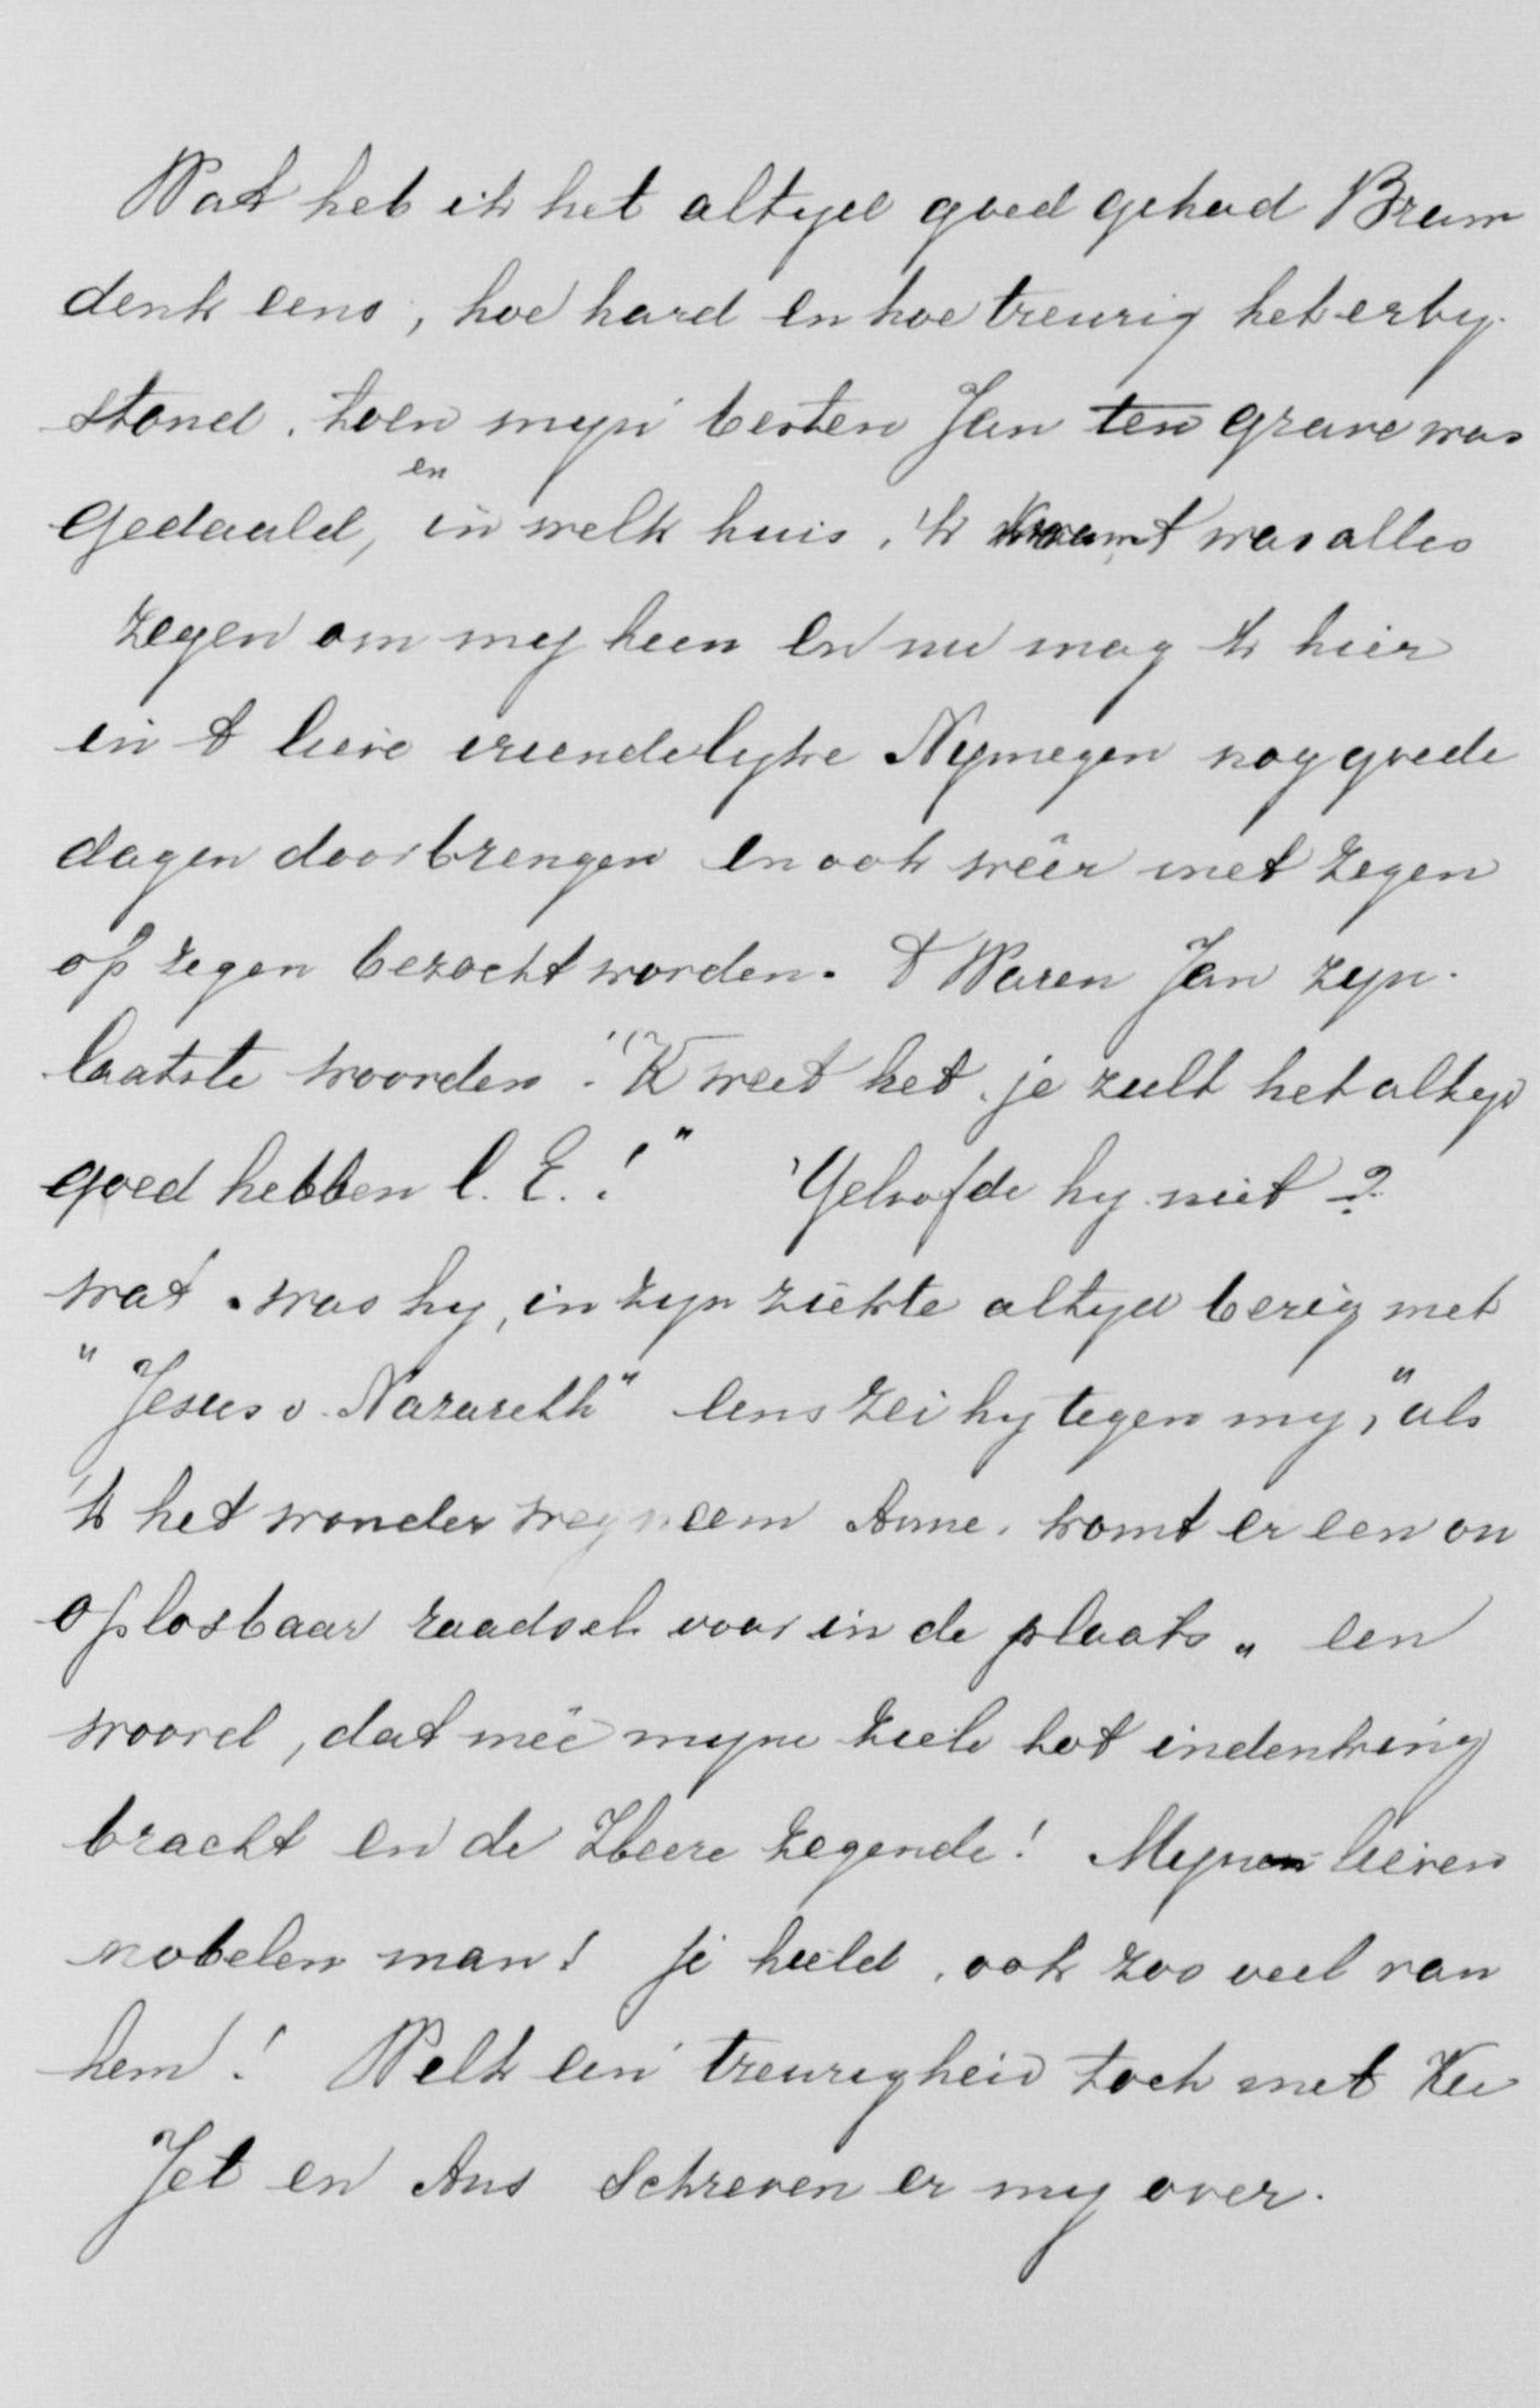 Wat heb ik het altyd goed gehad Bram
denk eens, hoe hard en hoe treurig het erby
stond, toen myn besten Jan ten grave was
gedaald, en in welk huis, 'k kwam, 't was alles
zegen om my heen en nu mag 'k hier
in 't lieve vriendelyke Nymegen nog goede
dagen doorbrengen en ook wêer met zegen
op zegen bezocht worden. 't Waren Jan zyn
laatste woorden. "K weet het, je zult het altyd
goed hebben l. E.!" Geloofde hy niet?
wat was hy, in zyn ziekte altyd bezig met
"Jesus v. Nazareth" eens zei hy tegen my, "als
'k het wonder wegneem Anne, komt er een on
oplosbaar raadsel voor in de plaats" een
woord, dat mêe myne ziele tot indenking
bracht en de Heere zegende! Mynen lieven
nobelen man! je hield, ook zoo veel van
hem! Welk een treurigheid toch met Ku
Jet en Ans schreven er my over.